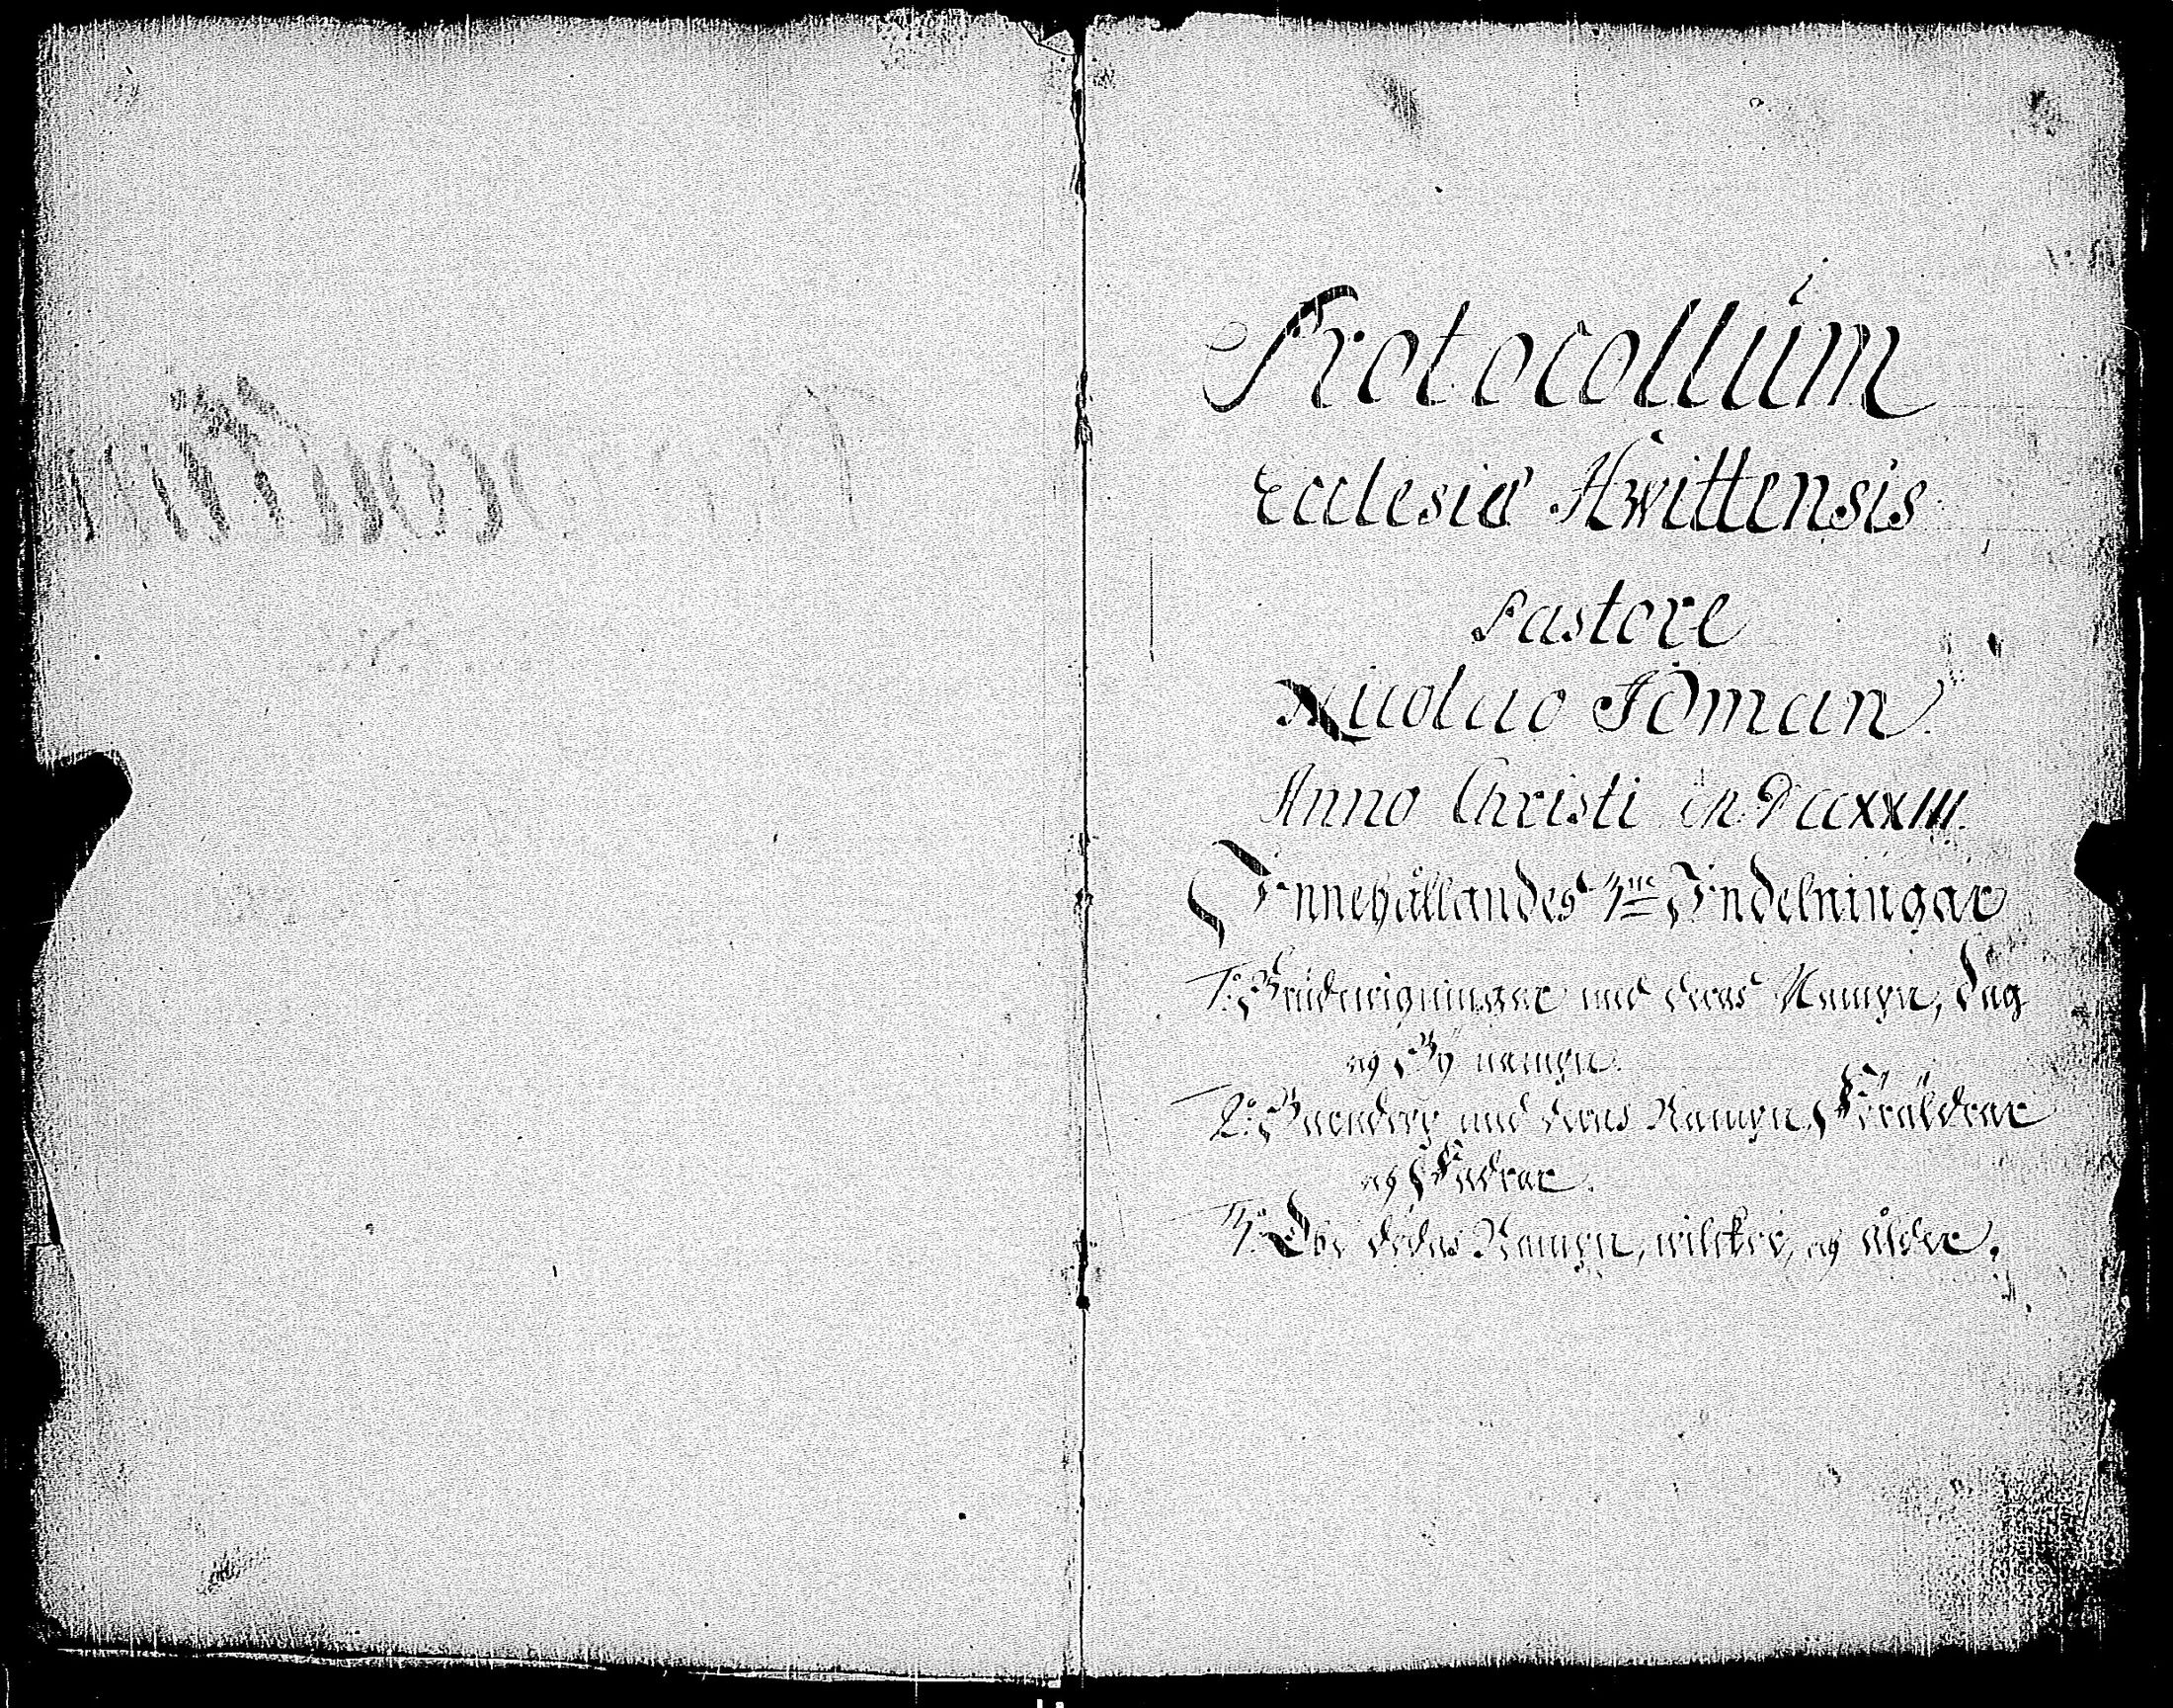 Protocollum
Ecclesiæ Hwittensis
Pastore
Nicolao Homan.
Anno Christi MDCCXXIII.
Innehållandes 3ne Indelningar
1:o Brudewigningar med deras Nampn, dag
og By nampn.
2:o Barndop med deras Nampn, Föräldrar
og Fadrar.
3:o Dödas Nampn, wilckor, og ålder.